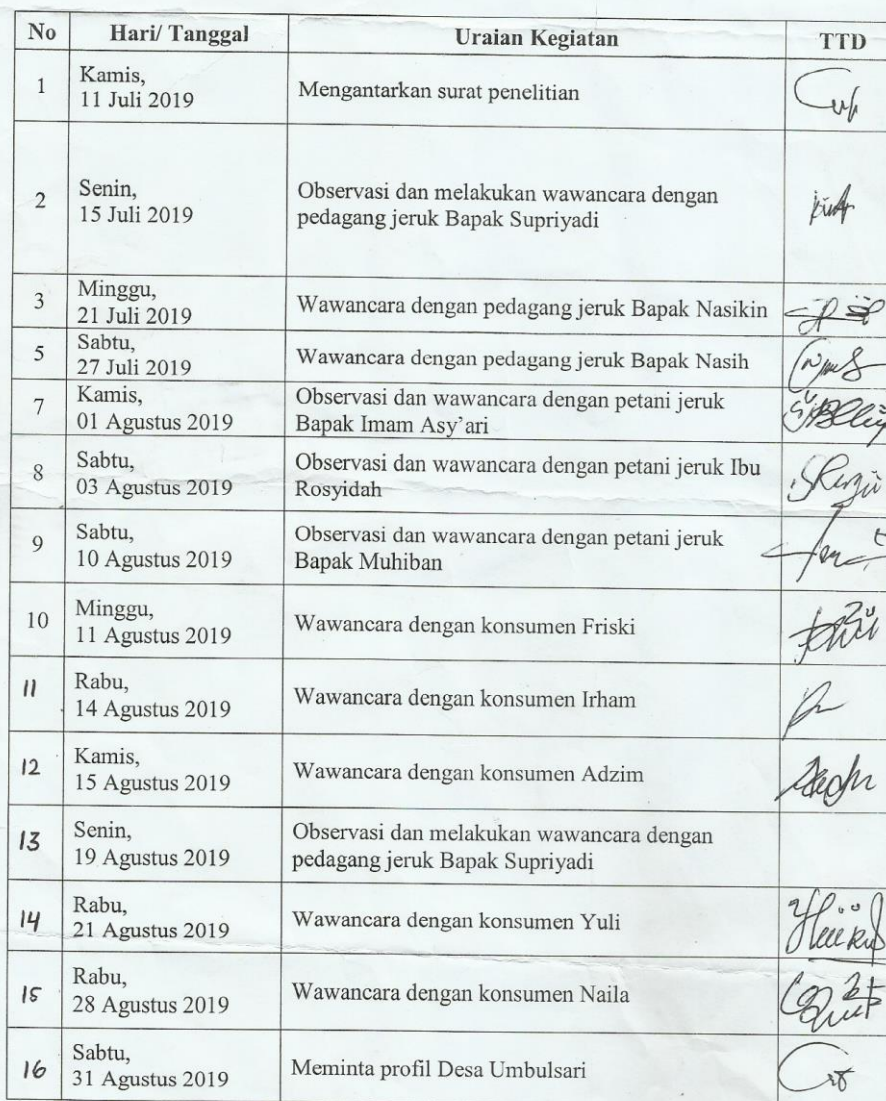 No Hari/ Tanggal Uraian Kegiatan TTD
1 Kamis, 11 Juli 2019 Mengantarkan surat penelitian
2 Senin, 15 Juli 2019 Observasi dan melakukan wawancara dengan
pedagang jeruk Bapak Supriyadi
3 Minggu, 21 Juli 2019 Wawancara dengan pedagang jeruk Bapak Nasikin
5 Sabtu, 27 Juli 2019 Wawancara dengan pedagang jeruk Bapak Nasih
7 Kamis, 01 Agustus 2019 Observasi dan wawancara dengan petani jeruk
Bapak Imam Asy’ari
8 Sabtu, 03 Agustus 2019 Observasi dan wawancara dengan petani jeruk Ibu
Rosyidah
9 Sabtu, 10 Agustus 2019 Observasi dan wawancara dengan petani jeruk
Bapak Muhiban
10 Minggu, 11 Agustus 2019 Wawancara dengan konsumen Friski
11 Rabu, 14 Agustus 2019 Wawancara dengan konsumen Irham
12 Kamis, 15 Agustus 2019 Wawancara dengan konsumen Adzim
13 Senin, 19 Agustus 2019 Observasi dan melakukan wawancara dengan
pedagang jeruk Bapak Supriyadi
14 Rabu, 21 Agustus 2019 Wawancara dengan konsumen Yuli
15 Rabu, 28 Agustus 2019 Wawancara dengan konsumen Naila
16 Sabtu, 31 Agustus 2019 Meminta profil Desa Umbulsari